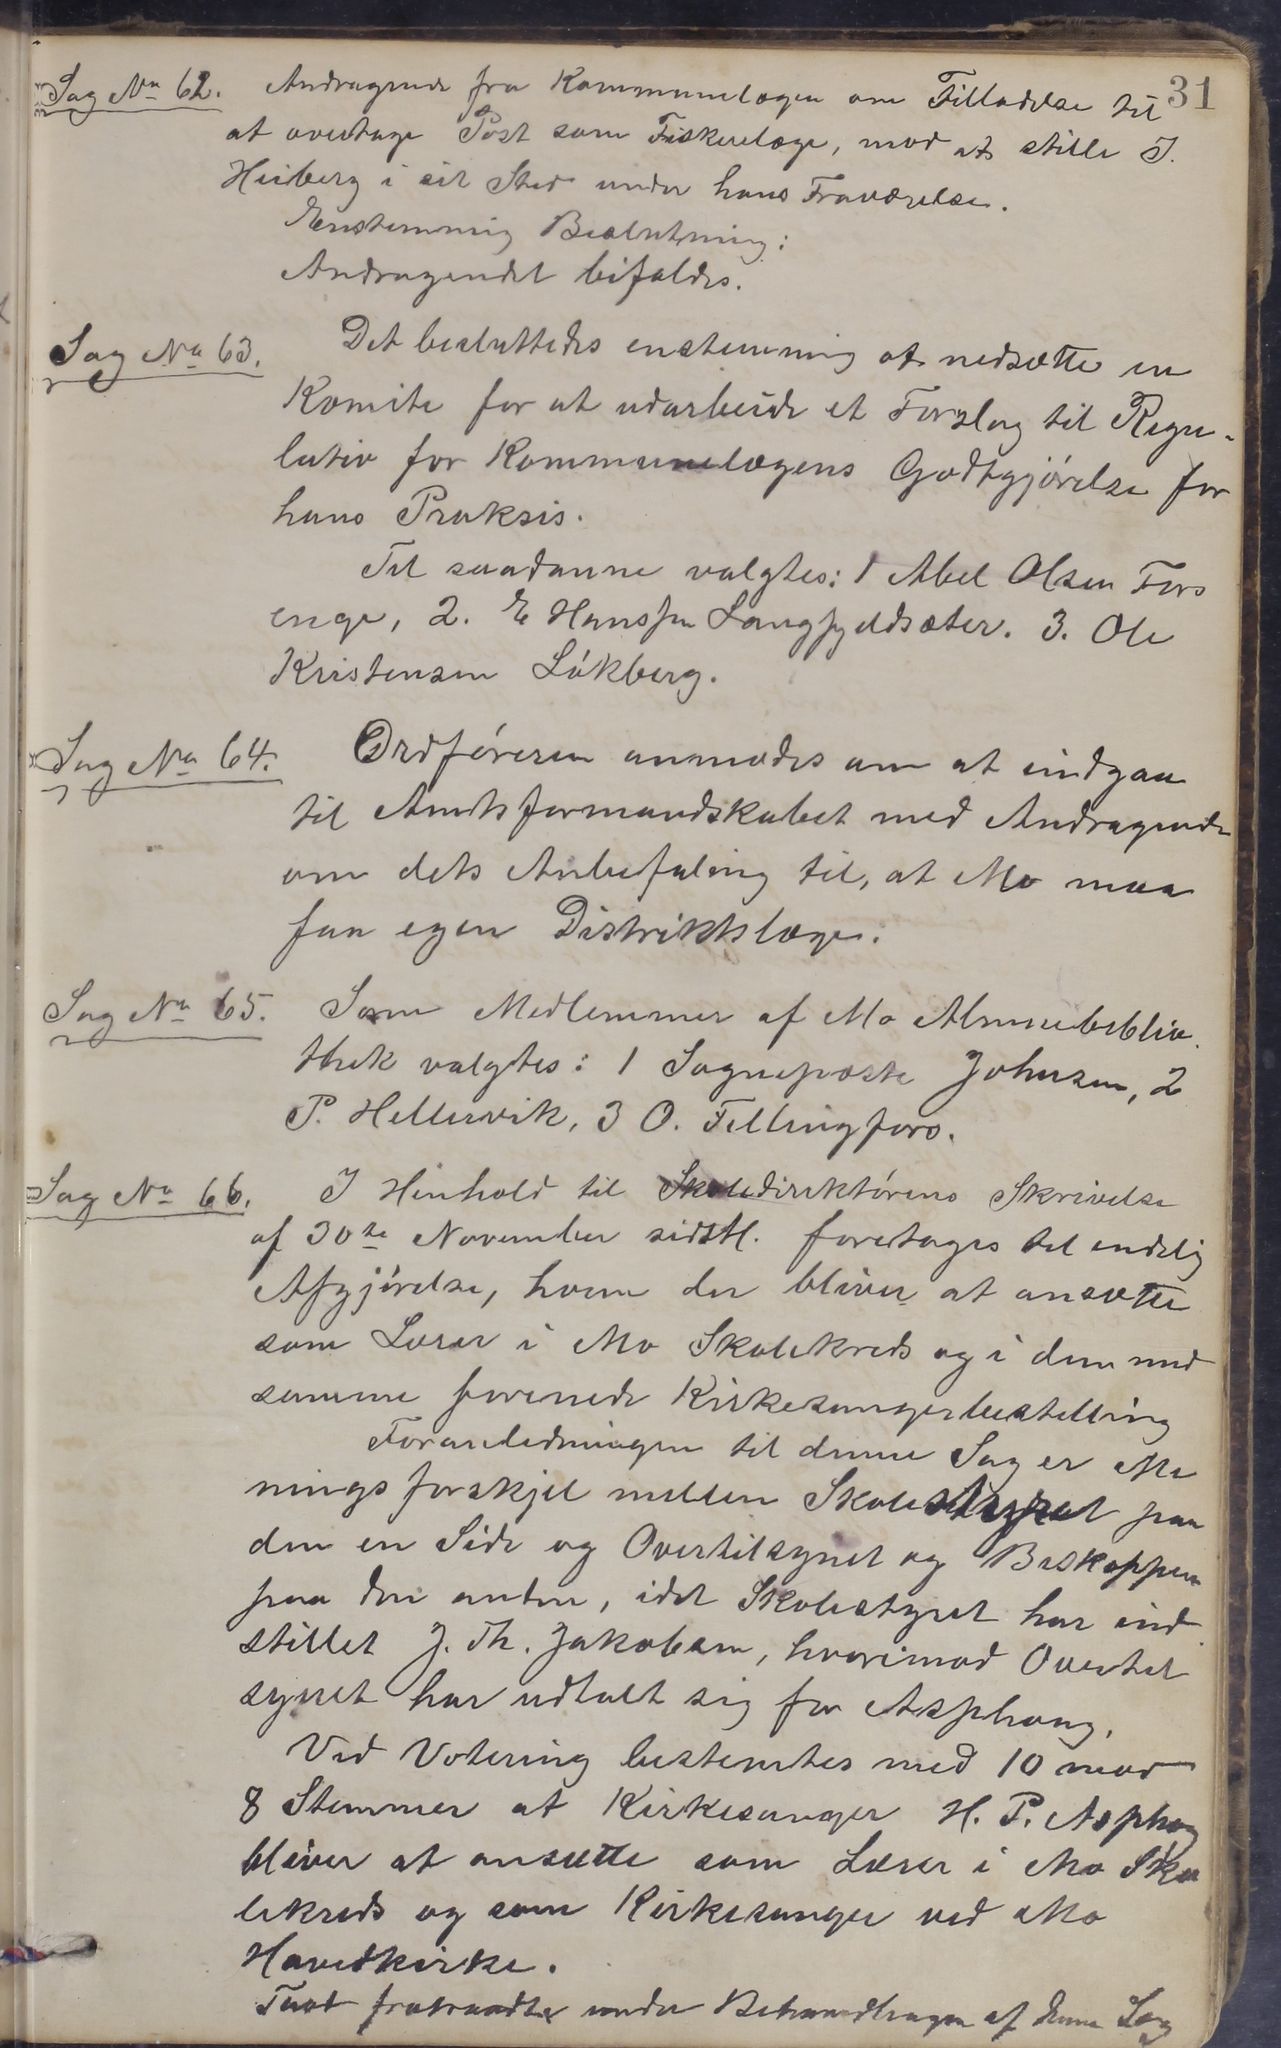 31
Sag No 62. Andragende fra Kommunelægen om Tilladelse til
at overtage Post som Fiskerlæge, mod at stille J.
Heiberg i sit Sted under hans Fraværelse.
Enstemmig Beslutning:
Andragendet bifaldes.
Sag No 63. Det besluttedes enstemmig at nedsætte en
Komite for at udarbeide et Forslag til Regu-
lativ for Kommunelægens Godtgjörelse for
hans Praksis.
Til saadanne valgtes: 1 Abel Olsen Fors
enge, 2. E Hanssen Langfjeldsæter. 3. Ole
Kristensen Lökberg.
Sag No 64. Ordföreren anmodes om at indgaa
til Amtsformandskabet med Andragende
om dets Anbefaling til, at Mo maa
faa egen Distriktslæge.
Sag No 65. Som Medlemmer af Mo Almuebiblio
thek valgtes: 1 Sognepræste Johnsen, 2
P. Hellervik, 3 O. Fellingfors.
Sag No 66. I Hinhold til Skoledirektörens Skrivelse
af 30te November sidstl. foretages til endelig
Afgjörelse, hvem der bliver at ansætte
som Lærer i Mo Skolekreds og i den med
samme forenede Kirkesangerbestilling
Foranledningen til denne Sag er Me
ningsforskjel mellem Skolestyret paa
den en Side og Overtilsynet og Biskoppen
paa den anden, idet Skolestyret har ind
stillet J. Th. Jakobsen, hvorimod Overtil
synet har udtalt sig for Asphaug.
Ved Votering bestemtes med 10 mod
8 Stemmer at Kirkesanger H. P. Asphaug
bliver at ansætte som Lærer i Mo Sko
lekreds og som Kirkesanger ved Mo
Hovedkirke.
fratraadte under Behandlingen af denne Sag